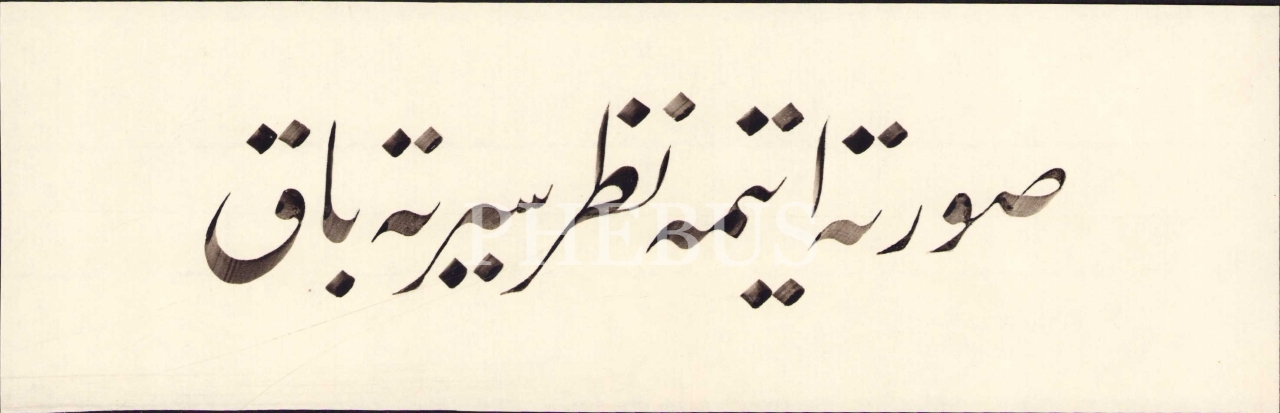 صورته ایتمه نظر سیرته باق
PHEBUS